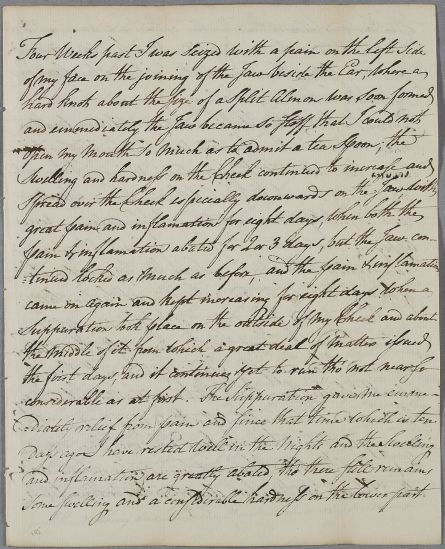 Four Weeks past I was seized with a pain on the left side
of my face on the joining of the Jaw beside the Ear, where a
hard knob about the size of a split Almon was soon formed
and immediately the Jaw became so stiff that I could not
open my mouth so much as to admit a tea spoon, the
swelling and hardness on the Cheek continued to increase and
spread over the Cheek especially downwards on the Jaw with
great pain and inflamation for eight days, when both the
pain & inflamation abated for 2 or 3 days, but the Jaw con-
-tinued locked as much as before and the pain & inflamation
came on again and kept increasing for eight days when a
Suppuration took place on the outside of my Cheek and about
the middle of it from which a great deal of matter issued
the first days, and it continues yet to run tho not near so
considerable as at first. The Suppuration gave me imme-
-diate relief from pain and since that time which is ten
days ago I have rested well in the Nights and the swelling
and inflamation are greatly abated, tho there still remains
some swelling and a considerable hardness on the lower part